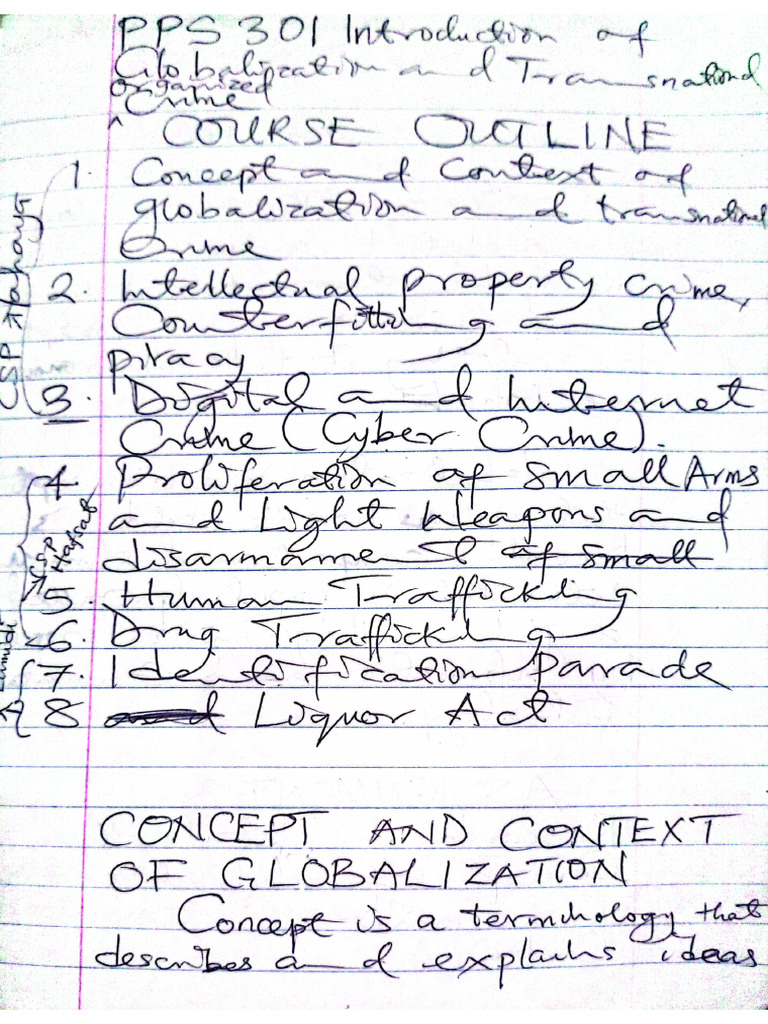 PPS 301 Introduction of
Globalization and Transnational
organized
^ Crime
COURSE OUTLINE
1. Concept and Context of
globalization and transnational
Crime
2. Intellectual property Crime,
Counterfitting and
piracy
3. Digital and Internet
Crime (Cyber Crime).
4. Proliferation of Small Arms
and Light Weapons and
disarmament of small
5. Human Trafficking
6. Drug Trafficking
7. Identification parade
8 and Liquor Act
CSP
CSP Hafsat
CONCEPT AND CONTEXT
OF GLOBALIZATION
Concept is a terminology that
describes and explains ideas